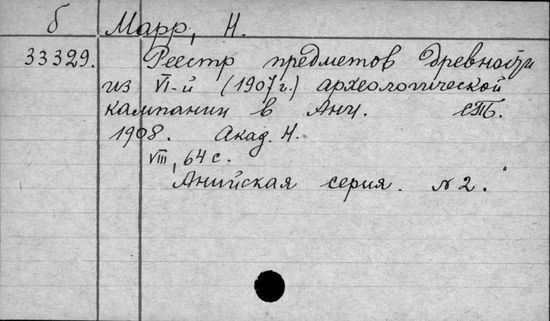 б Марр, Н.
33329. Реестр предметов древности
из VI-й (1907 г.) археологической
кампании в Ани. СПб.
1908. Акад. Н.
VIII, 64 с.
Анийская серия. №2.